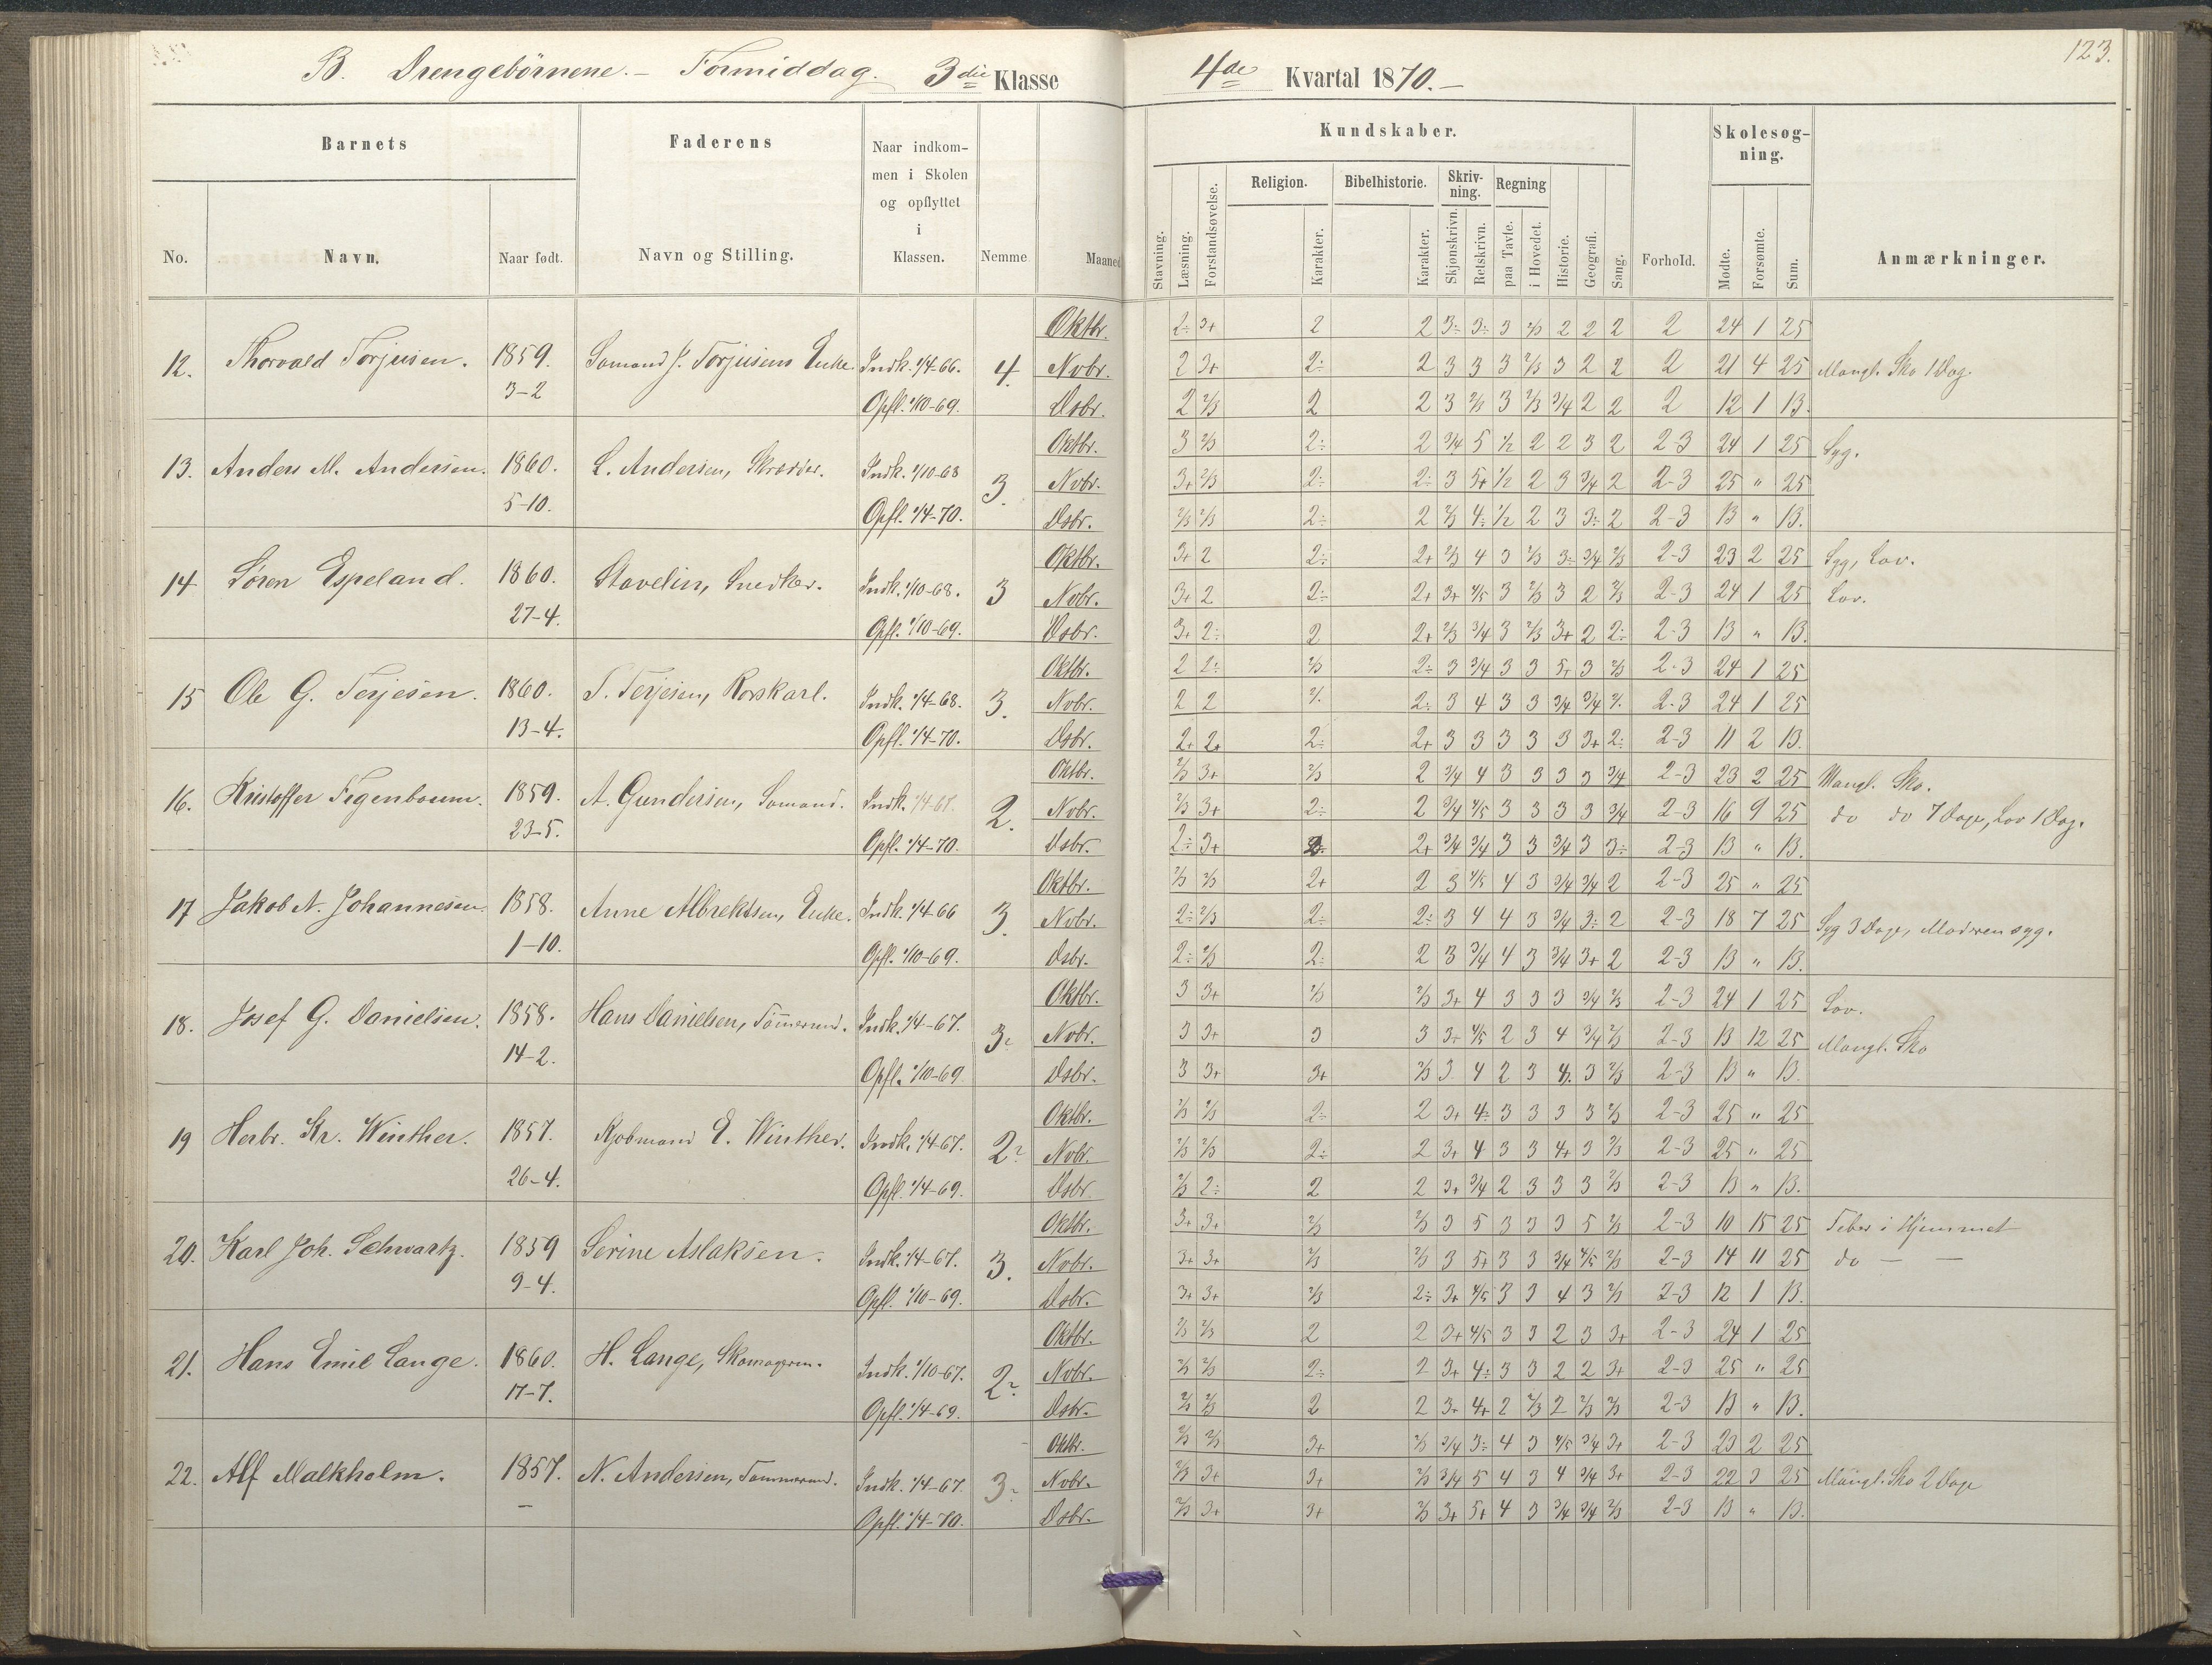 B. Drengebörnene. – Formiddag. 3die Klasse
4de Kvartal 1870. –
123.
Barnets
Faderens
Naar indkom-
men i Skolen
og opflyttet
i
Klassen.
No.
Navn.
Naar født.
Navn og Stilling.
Nemme
Maaned
Kundskaber.
Stavning.
Læsning.
Forstandsøvelse.
Religion.
Karakter.
Bibelhistorie.
Karakter.
Skriv-
ning.
Skjønskrivn.
Retskrivn.
Regning
paa Tavle.
i Hovedet.
Historie.
Geografi.
Sang.
Forhold.
Skolesøg-
ning.
Mødte.
Forsømte.
Sum.
Anmærkninger.
Oktbr. 2÷ 3+ 2 2 3÷ 3÷ 3 2/3 2 2 2 2 24 1 25
12. Thorvald Torjusen. 1859. Sømand J. Torjusens Enke. Indk. 1/4-66. 4. Novbr. 2 3+ 2÷ 2 3 3 3 2/3 3 2 2 2 21 4 25 Mangl. Sko 1 Dag.
3-2 Opfl. 1/10-69. Dsbr. 2 2/3 2 2 3 2/3 3 2/3 3/4 2 2 2 12 1 13.
Oktbr. 3 2/3 2÷ 2 3/4 5 1/2 2 2 3 2 2-3 24 1 25 Syg.
13. Anders M. Andersen. 1860. L. Andersen, Skrædder. Indk. 1/10-68 3. Novbr. 3+ 2/3 2÷ 2÷ 3 5+ 1/2 2 3 3/4 2 2-3 25 " 25
5-10. Opfl. 1/4-70. Dsbr. 2/3 2/3 2÷ 2 2/3 4÷ 1/2 2 3 3÷ 2 2-3 13 " 13.
Oktbr. 3+ 2 2÷ 2+ 2/3 4 3 2/3 3÷ 3/4 2/3 2-3 23 2 25 Syg, Lov.
14 Søren Espeland. 1860. Stavelin, Snedker. Indk. 1/10-68. 3 Novbr. 3+ 2 2÷ 2+ 3+ 4/5 3 2/3 3 2 2/3 2-3 24 1 25 Lov.
27-4. Opfl. 1/10-69. Dsbr. 3+ 2÷ 2 2+ 2/3 3/4 3 2/3 3+ 2 2÷ 2-3 13 " 13.
Oktbr. 2 2÷ 2/3 2÷ 3 3/4 3 3 5+ 3 2/3 2-3 24 1 25
15 Ole G. Terjesen. 1860. T. Terjesen, Rorskarl. Indk. 1/4-68. 3. Novbr. 2 2 2÷ 3 4 3 3 3/4 3/4 2-3 24 1 25
13-4. Opfl. 1/4-70. Dsbr. 2+ 2+ 2÷ 2+ 3 3 3 3 3 3+ 2÷ 2-3 11 2 13.
Oktbr. 2/3 3+ 2/3 2 3/4 4 3 3 3 3 3/4 2-3 23 2 25 Mangl. Sko.
16. Kristoffer Fegenboum. 1859. A. Gundersen, Sømand. Indk. 1/4-67. 2. Novbr. 2/3 3+ 2÷ 2 3/4 4/5 3 3 3 3 3/4 2-3 16 9 25 do do 7 Dage, Lov 1 Dag.
23-5. Opfl. 1/4-70. Dsbr. 2÷ 3+ 2÷ 2+ 3/4 3/4 3 3 3/4 3 3÷ 2-3 13 " 13.
Oktbr. 2/3 2/3 2+ 2 3 4/5 4 3 3/4 3/4 2 2-3 25 " 25
17 Jakob A. Johannesen. 1858. Anne Albrektsen, Enke. Indk. 1/4-66 3. Novbr. 2÷ 2/3 2÷ 2÷ 3 4 4 3 3/4 3÷ 2 2-3 18 7 25 Syg 3 Dage, Moderen syg.
1-10. Opfl. 1/10-69. Dsbr. 2÷ 2/3 2÷ 2 3 3/4 4 3 3/4 3+ 2 2-3 13 " 13.
Oktbr. 3 3+ 2/3 2/3 3+ 4 3 3 3 3/4 2/3 2-3 24 1 25 Lov.
18. Josef G. Danielsen. 1858. Hans Danielsen, Tømmermd. Indk. 1/4-67. 3. Novbr. 3 3+ 3 3 3+ 4/5 2 3 4 3/4 2/3 2-3 13 12 25 Mangl. Sko
14-2. Opfl. 1/10-69. Dsbr. 3 3+ 3+ 2/3 3 4 2 3 4. 3 2/3 2-3 13 " 13.
Oktbr. 2/3 2/3 2÷ 2 3+ 4÷ 3 3 3 3 2/3 2-3 25 " 25
19 Herbr. Kr. Winther. 1857. Kjøbmand E. Winther. Indk. 1/4-67. 2. Novbr. 2/3 2/3 2÷ 2 3+ 4 3 3 4+ 3 2/3 2-3 25 " 25
26-4. Opfl. 1/4-69. Dsbr. 2/3 2÷ 2 2 3+ 3/4 2 3 3 3 2/3 2-3 13 " 13.
Oktbr. 3+ 3+ 2/3 2/3 3 5 3 3 3 5 2/3 2-3 10 15 25 Feber i Hjemmet
20. Karl Joh. Schwartz. 1859 Serine Aslaksen. Indk. 1/4-67. 3. Novbr. 3+ 3+ 2/3 2/3 3 5+ 3 3 3/4 4/5 2/3 2-3 14 11 25 do — —
9-4. Opfl. 1/10-69. Dsbr. 3+ 3+ 2/3 2÷ 3+ 4/5 3 3 4 3 2/3 2-3 12 1 13.
Oktbr. 2/3 2/3 2 2 3+ 4/5 3 3 2 3 3+ 2-3 24 1 25
21. Hans Emil Lange. 1860. H. Lange, Skomageren. Indk. 1/10-67. 2. Novbr. 2/3 2/3 2÷ 2 3+ 4÷ 3 3 2 2 3+ 2-3 25 " 25
17-7. Opfl. 1/4-69. Dsbr. 2/3 2/3 2 2 3+ 4+ 2 2/3 2 2/3 2/3 2-3 13 " 13.
Oktbr. 2/3 2/3 3+ 2/3 3/4 3÷ 4 3 4/5 3/4 3+ 2-3 23 2 25
22. Alf Malkholm. 1857. N. Andersen, Tømmermd. Indk. 1/4-67. 3. Novbr. 2/3 3+ 3+ 2/3 3/4 5 4 3 4 3/4 3+ 2-3 22 3 25 Mangl. Sko 2 Dage
– Opfl. 1/4-70. Dsbr. 2/3 3+ 3+ 2/3 3+ 5+ 4 3 3/4 3/4 2/3 2-3 13 " 13.